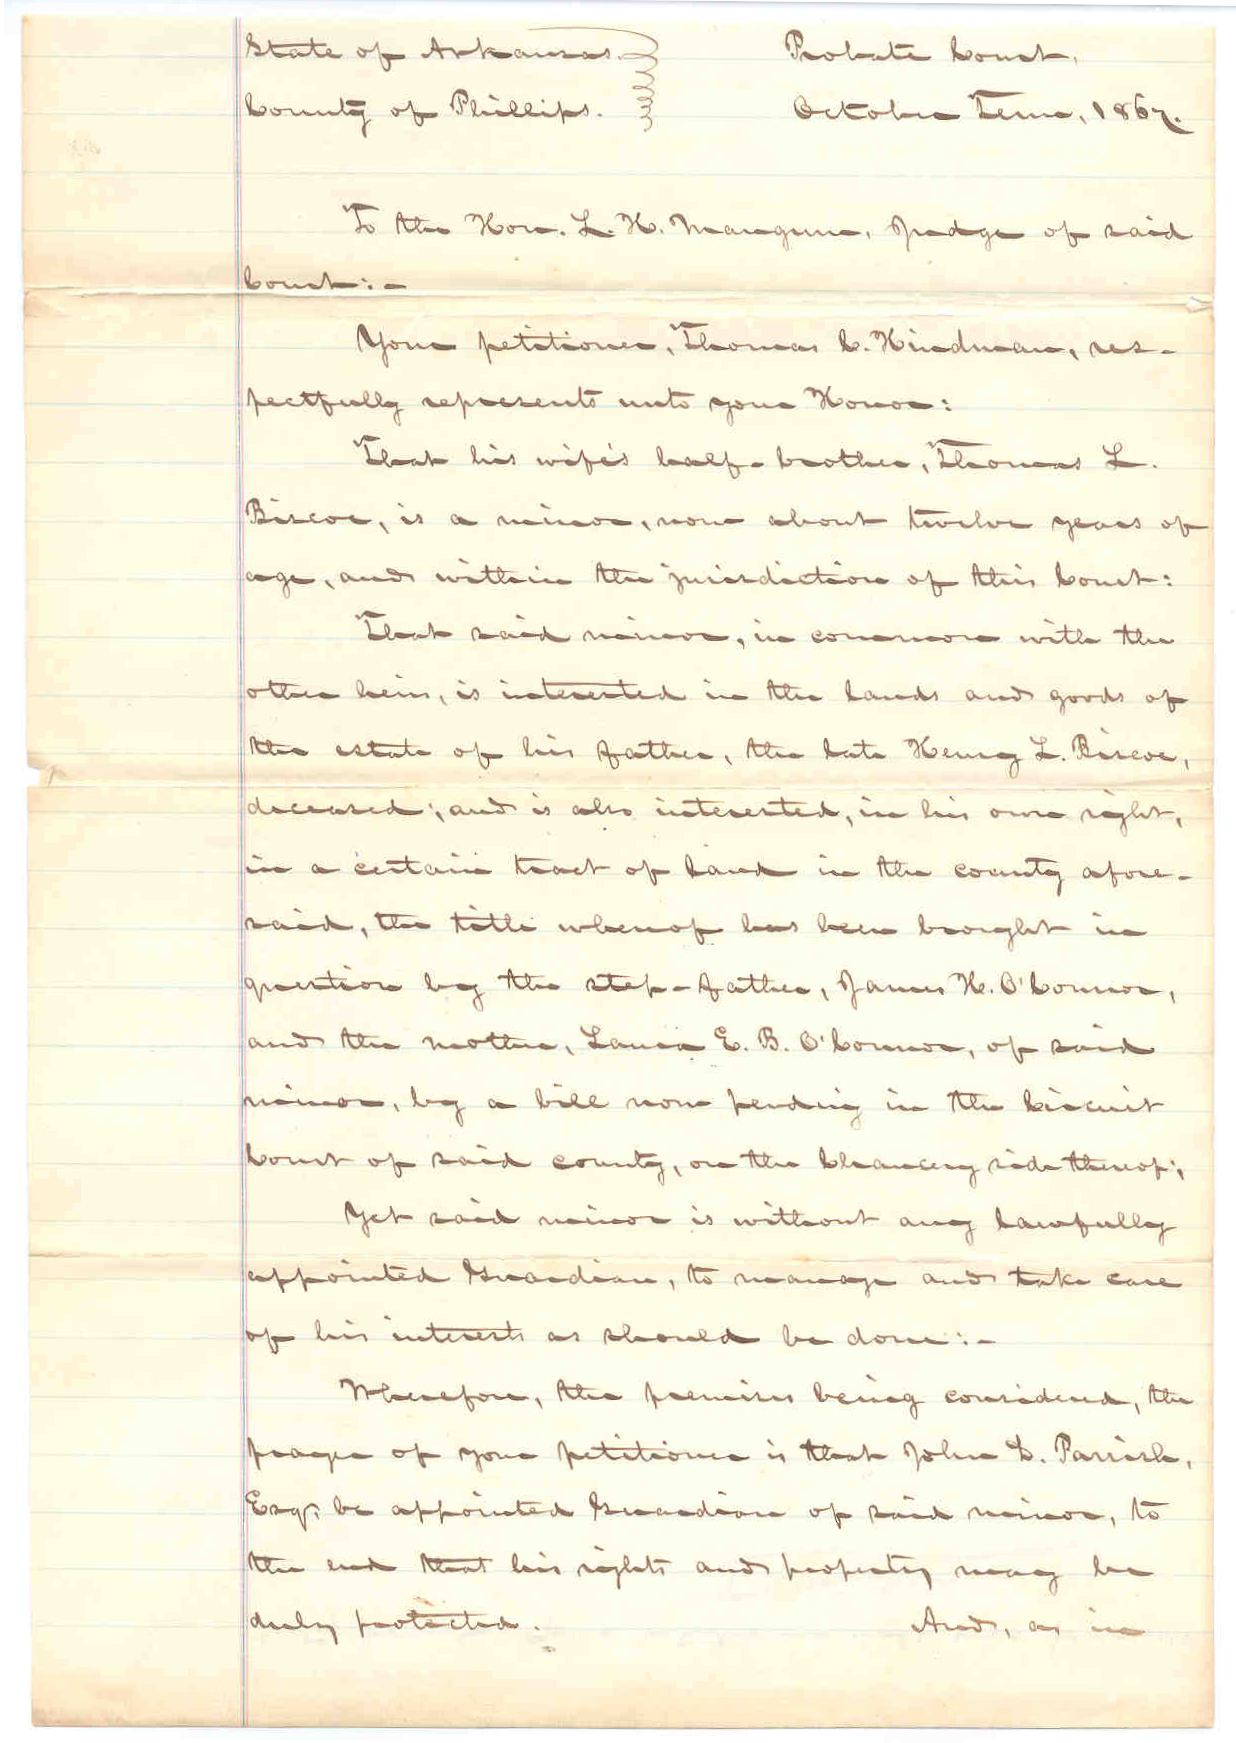 State of Arkansas. Probate Court,
County of Phillips. October Term, 1867.
To the Hon. L. H. Mangum, Judge of said
Court:-
Your petitioner, Thomas C. Hindman, res-
pectfully represents unto your Honor:
That his wife's half-brother, Thomas L.
Biscoe, is a minor, now about twelve years of
age, and within the jurisdiction of this Court:
That said minor, in common with the
other heirs, is interested in the lands and goods of
the estate of his father, the late Henry L. Biscoe,
deceased; and is also interested, in his own right,
in a certain tract of land in the county afore-
said, the title whereof has been brought in
question by the step-father, James H. O'Connor,
and the mother, Laura E. B. O'Connor, of said
minor, by a bill now pending in the Circuit
Court of said county, on the Chancery side thereof;
Yet said minor is without any lawfully
appointed Guardian, to manage and take care
of his interests as should be done:-
Wherefore, the premises being considered, the
prayer of your petitioner is that John D. Parrish,
Esq. be appointed Guardian of said minor, to
the end that his rights and property may be
duly protected. And, as in